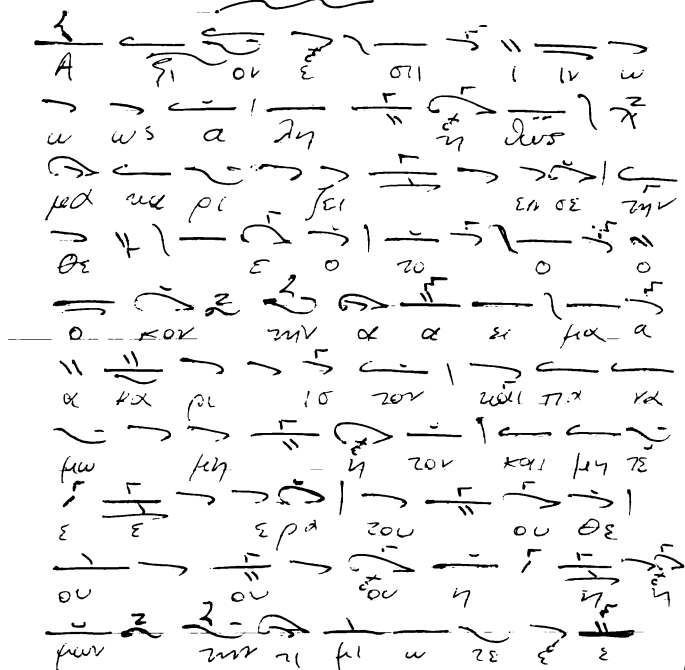 Α ξι ον ε στι ι ιν ω
ω ως α λη η θως
μα κα ρι ζει ειν σε την
Θε ε ο το ο ο
ο κον την α α ει μα α
α κα ρι ισ τον και πα να
μω μη η τον και μη τε
ε ε ε ρα του ου Θε
ου ου ου η η η
μων την τι μι ω τε ε ε